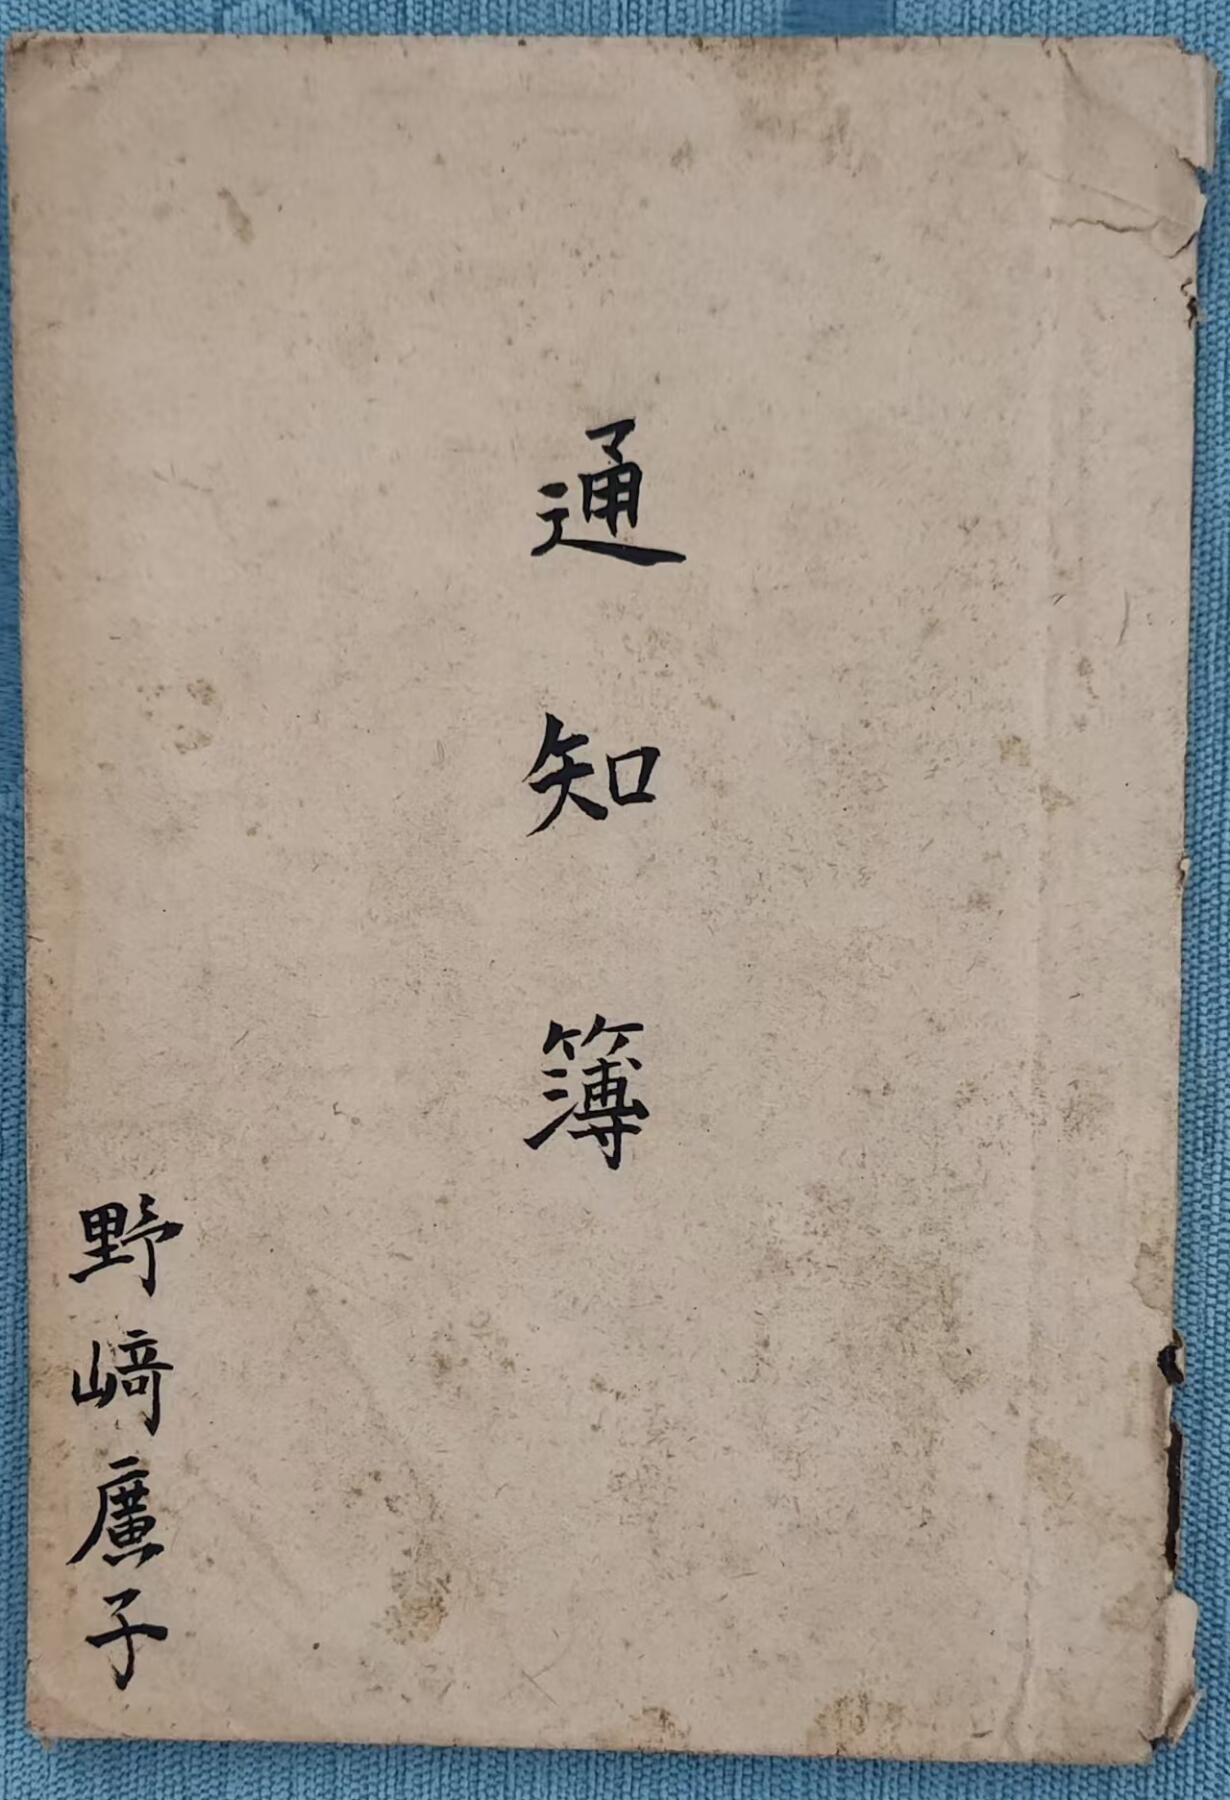 通知簿
野﨑廣子